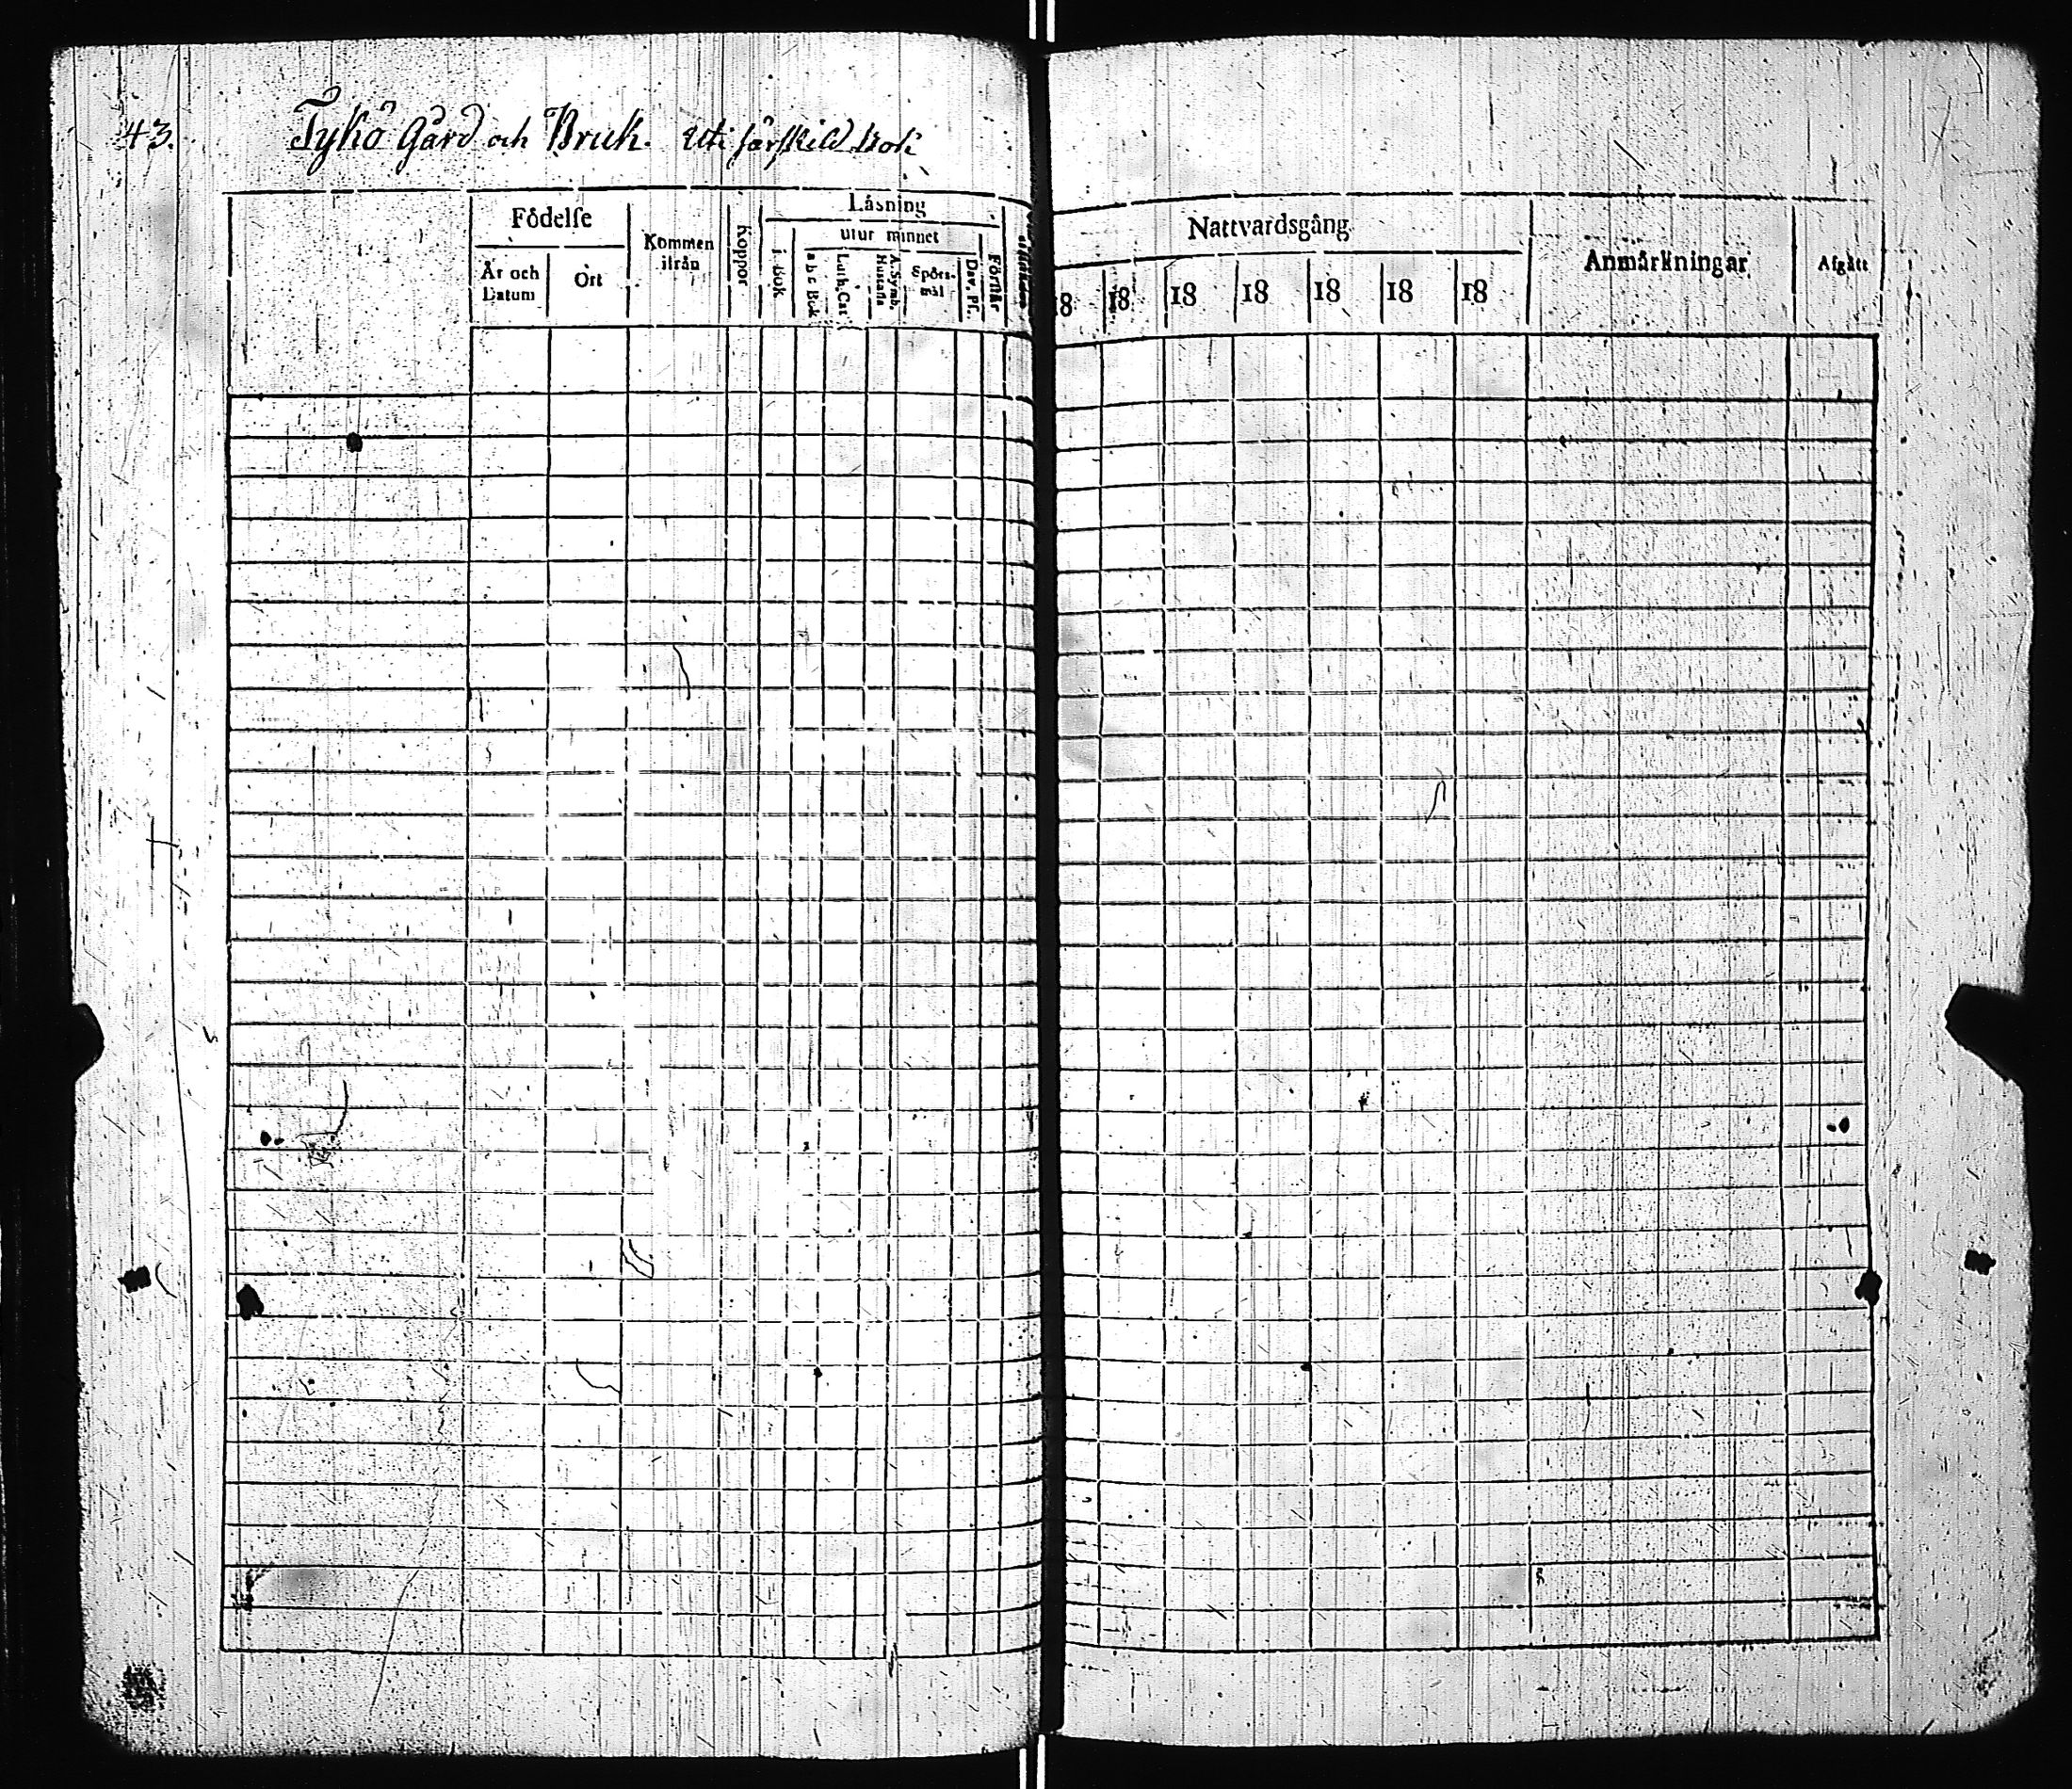 43. Tykö Gård och Bruk. Uti särskild Bok
Födelse
År och Datum
Ort
Kommen ifrån
Koppor
Läsning
i bok
utur minnet
a b c Bok
Luth. Cat.
A. Symb. Hustafla
Spörs-mål
Dav. Ps.
Förstår
Nattvardsgång
18 18 18 18 18 18 18
Anmärkningar
Afgått